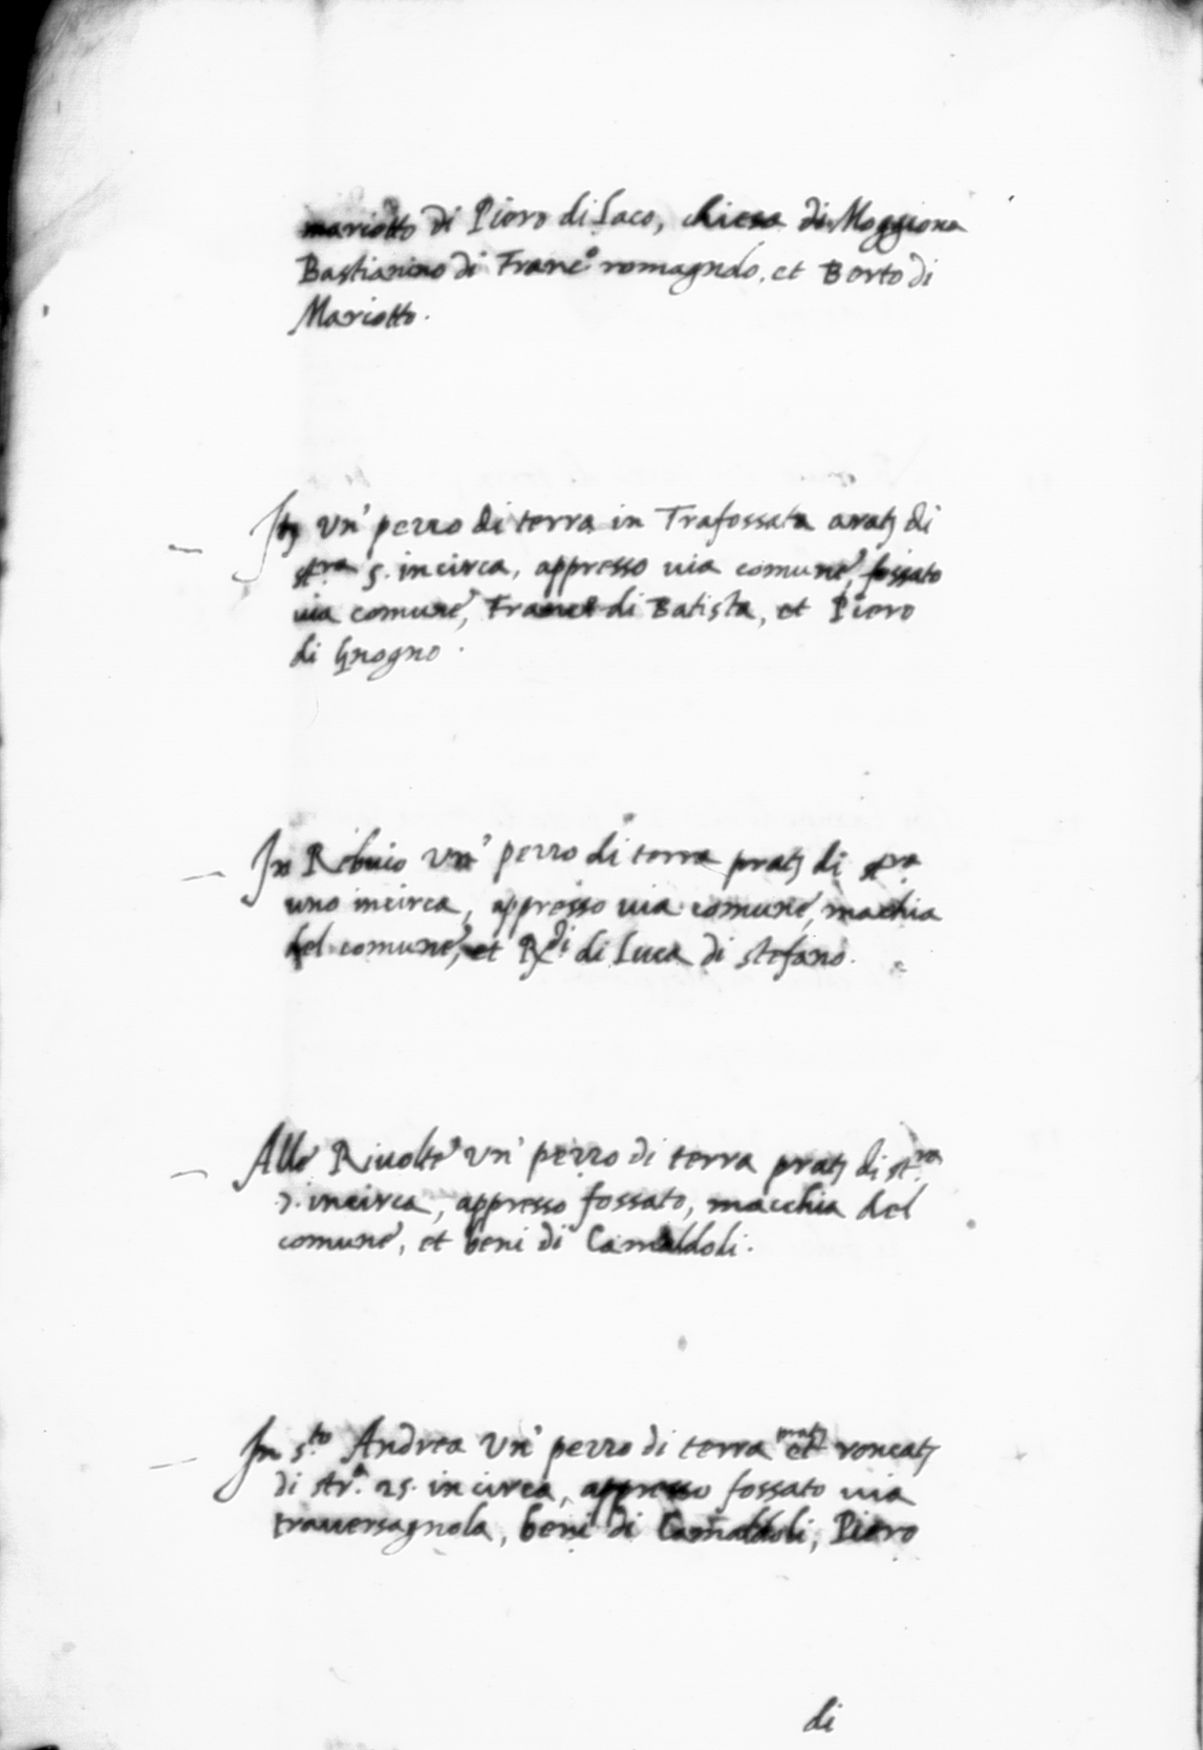 mariotto di Piero di Laco, chiesa di Moggiona
Bastianino di Franc.º romagnolo, et Berto di
Mariotto.
Itꝫ Un' pezzo di terra in Trafossata aratꝫ di
st.ra 5. incirca, appresso uia comune, fossato
uia comune, Franc.º di Batista, et Piero
di
In Un' pezzo di terra pratꝫ di st.ra
uno incirca, appresso uia comune, macchia
del comune, et R.di di Luca di stefano.
Alle Riuolte Un' pezzo di terra pratꝫ di st.ra
incirca, appresso fossato, macchia del
comune, et beni di Camaldoli.
In s.to Andrea Un' pezzo di terra pratꝫ et roncatꝫ
di str.ª 25. incirca, appresso fossato uia
trauersagnola, beni di Camaldoli, Piero
di